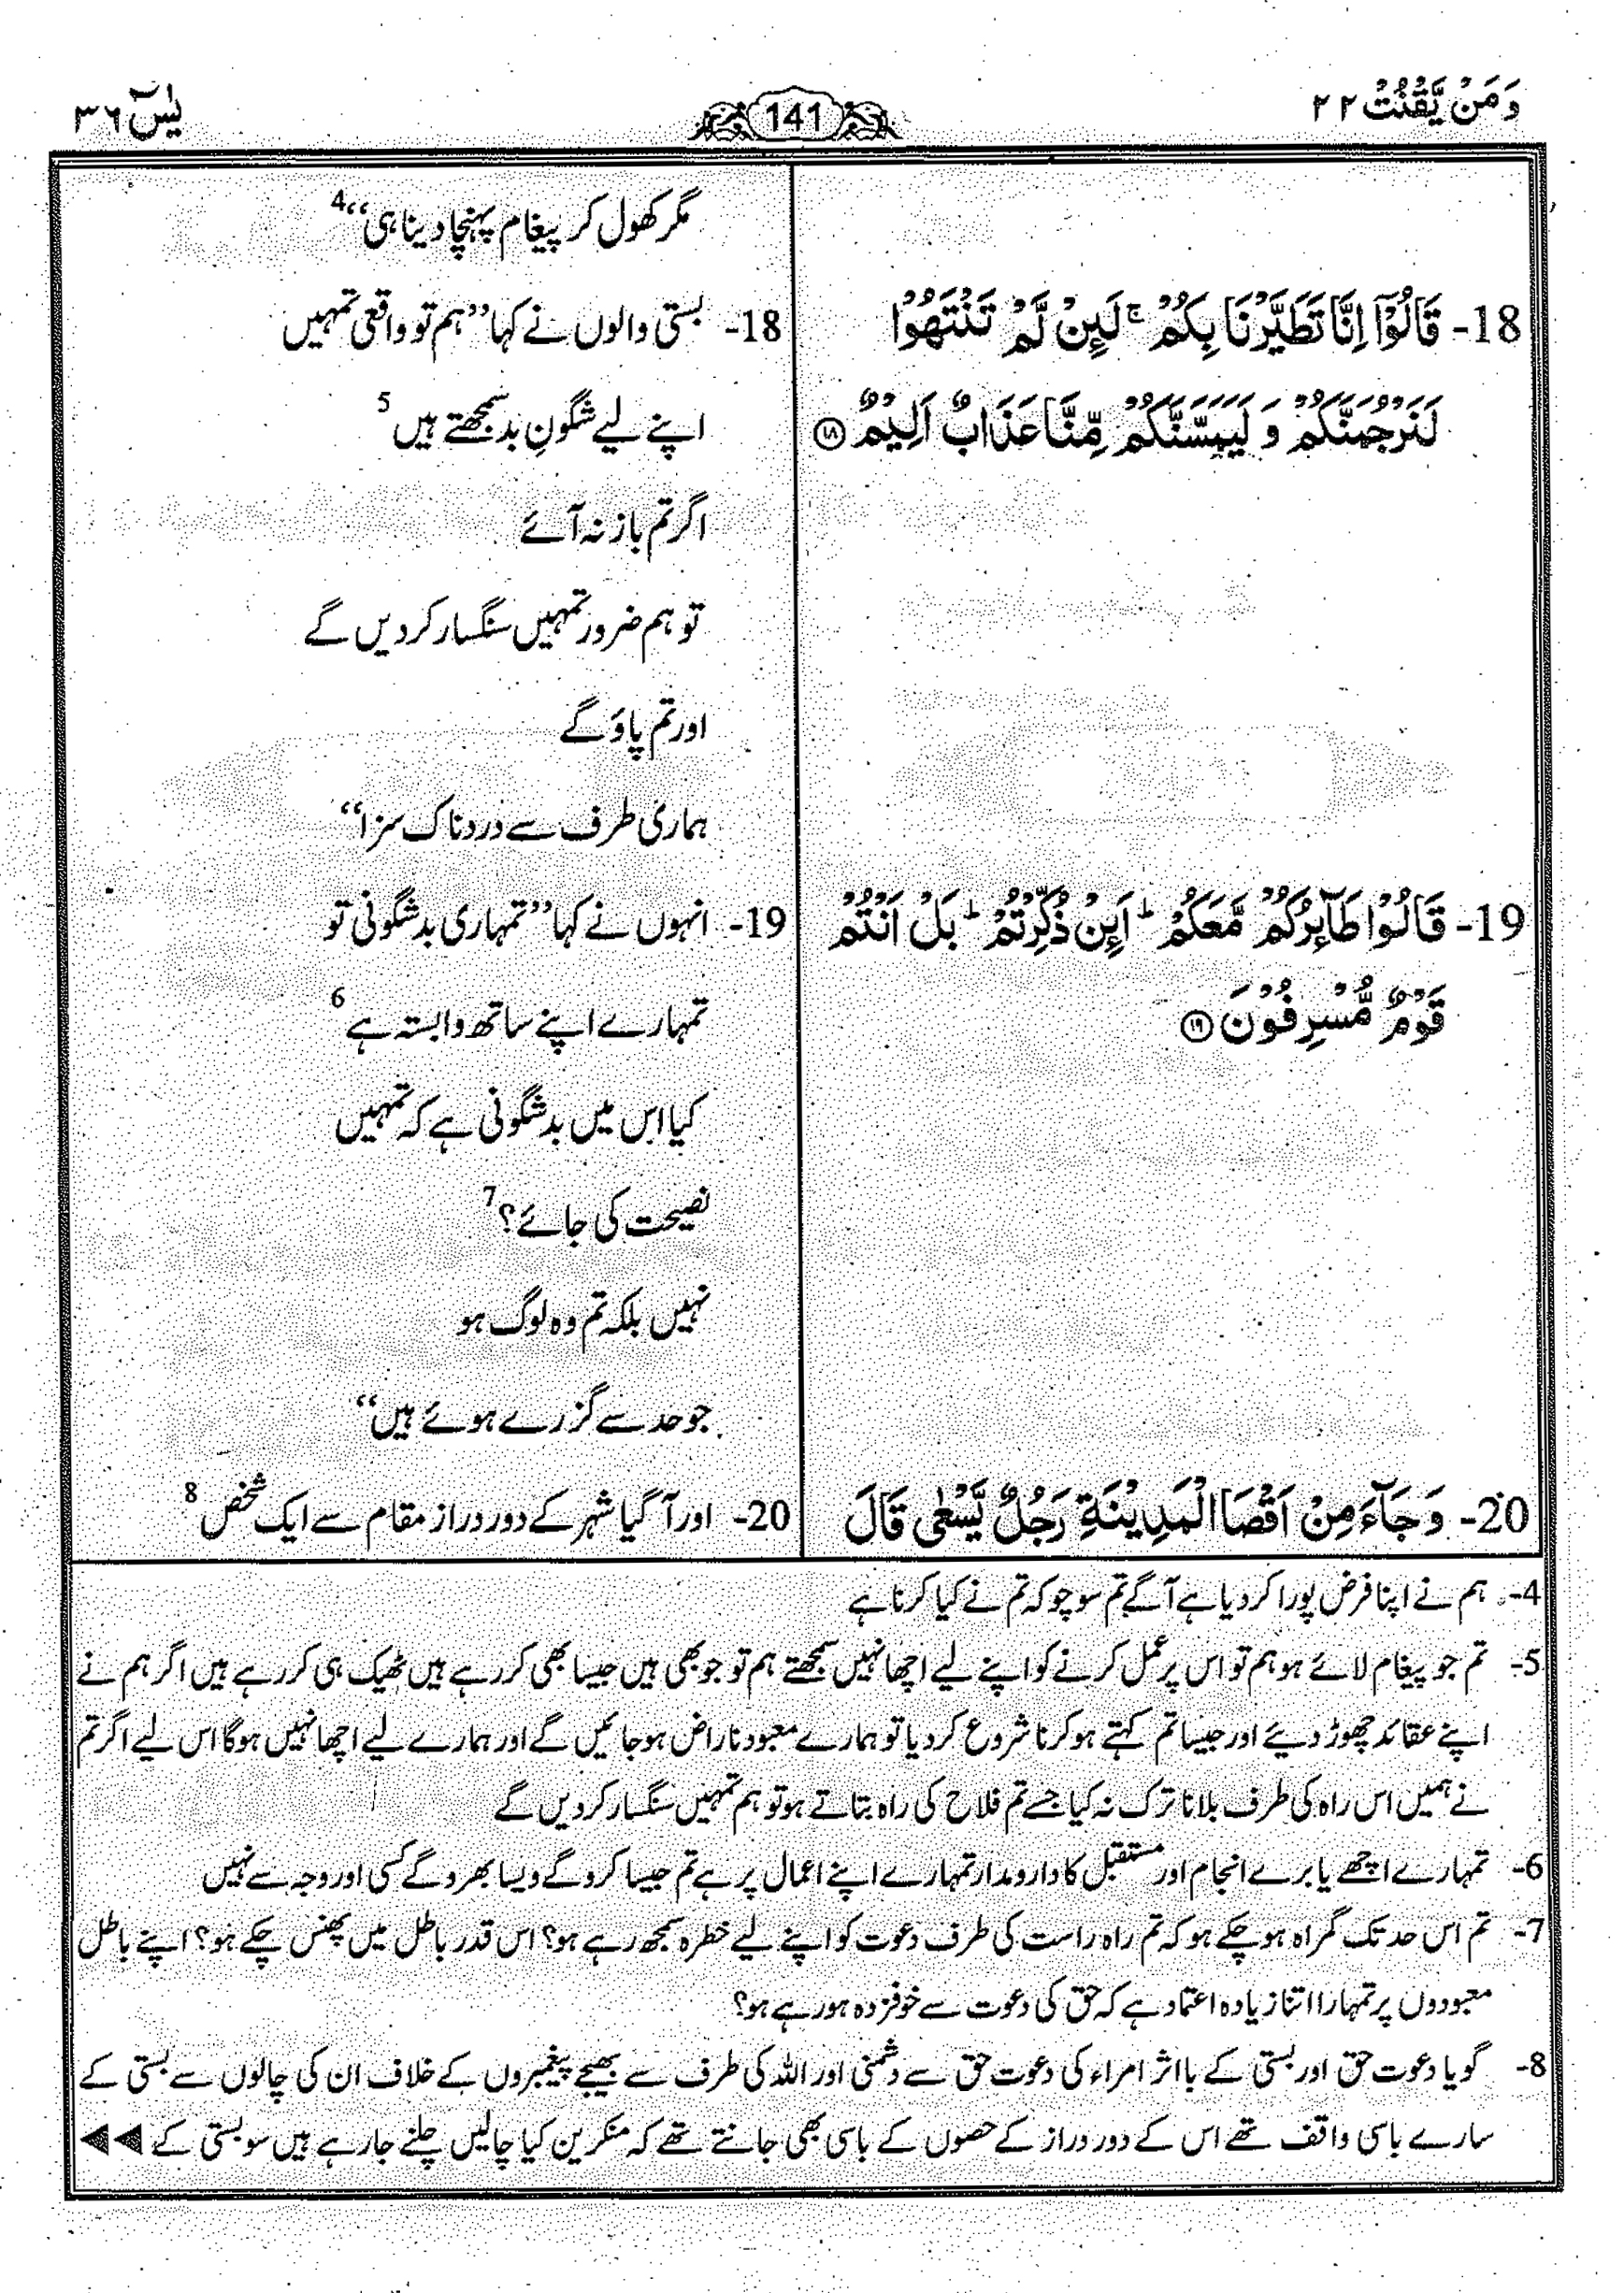 وَمَنۡ یَّقۡنُتۡ ۲۲
141
یٰسٓ ۳۶
مگر کھول کر پیغام پہنچا دینا ہی“ 4
18- قَالُوۡۤا اِنَّا تَطَیَّرۡنَا بِکُمۡ ۚ لَئِنۡ لَّمۡ تَنۡتَہُوۡا
لَنَرۡجُمَنَّکُمۡ وَ لَیَمَسَّنَّکُمۡ مِّنَّا عَذَابٌ اَلِیۡمٌ ﴿۱۸﴾
18- بستی والوں نے کہا ”ہم تو واقعی تمہیں
اپنے لیے شگونِ بد سمجھتے ہیں 5
اگر تم باز نہ آئے
تو ہم ضرور تمہیں سنگسار کر دیں گے
اور تم پاؤ گے
ہماری طرف سے دردناک سزا“
19- قَالُوۡا طَآئِرُکُمۡ مَّعَکُمۡ ؕ اَئِنۡ ذُکِّرۡتُمۡ ؕ بَلۡ اَنۡتُمۡ
قَوۡمٌ مُّسۡرِفُوۡنَ ﴿۱۹﴾
19- انہوں نے کہا ”تمہاری بدشگونی تو
تمہارے اپنے ساتھ وابستہ ہے 6
کیا اس میں بدشگونی ہے کہ تمہیں
نصیحت کی جائے؟ 7
نہیں بلکہ تم وہ لوگ ہو
جو حد سے گزرے ہوئے ہیں“
20- وَ جَآءَ مِنۡ اَقۡصَا الۡمَدِیۡنَۃِ رَجُلٌ یَّسۡعٰی قَالَ
20- اور آ گیا شہر کے دور دراز مقام سے ایک شخص 8
4- ہم نے اپنا فرض پورا کر دیا ہے آگے تم سوچو کہ تم نے کیا کرنا ہے
5- تم جو پیغام لائے ہو ہم تو اس پر عمل کرنے کو اپنے لیے اچھا نہیں سمجھتے ہم تو جو بھی ہیں جیسا بھی کر رہے ہیں ٹھیک ہی کر رہے ہیں اگر ہم نے
اپنے عقائد چھوڑ دیئے اور جیسا تم کہتے ہو کرنا شروع کر دیا تو ہمارے معبود ناراض ہو جائیں گے اور ہمارے لیے اچھا نہیں ہوگا اس لیے اگر تم
نے ہمیں اس راہ کی طرف بلانا ترک نہ کیا جسے تم فلاح کی راہ بتاتے ہو تو ہم تمہیں سنگسار کر دیں گے
6- تمہارے اچھے یا برے انجام اور مستقبل کا دارومدار تمہارے اپنے اعمال پر ہے تم جیسا کرو گے ویسا بھرو گے کسی اور وجہ سے نہیں
7- تم اس حد تک گمراہ ہو چکے ہو کہ تم راہ راست کی طرف دعوت کو اپنے لیے خطرہ سمجھ رہے ہو؟ اس قدر باطل میں پھنس چکے ہو؟ اپنے باطل
معبودوں پر تمہارا اتنا زیادہ اعتماد ہے کہ حق کی دعوت سے خوفزدہ ہو رہے ہو؟
8- گویا دعوت حق اور بستی کے بااثر امراء کی دعوت حق سے دشمنی اور اللہ کی طرف سے بھیجے پیغمبروں کے خلاف ان کی چالوں سے بستی کے
سارے باسی واقف تھے اس کے دور دراز کے حصوں کے باسی بھی جانتے تھے کہ منکرین کیا چالیں چلنے جا رہے ہیں سو بستی کے ◀◀